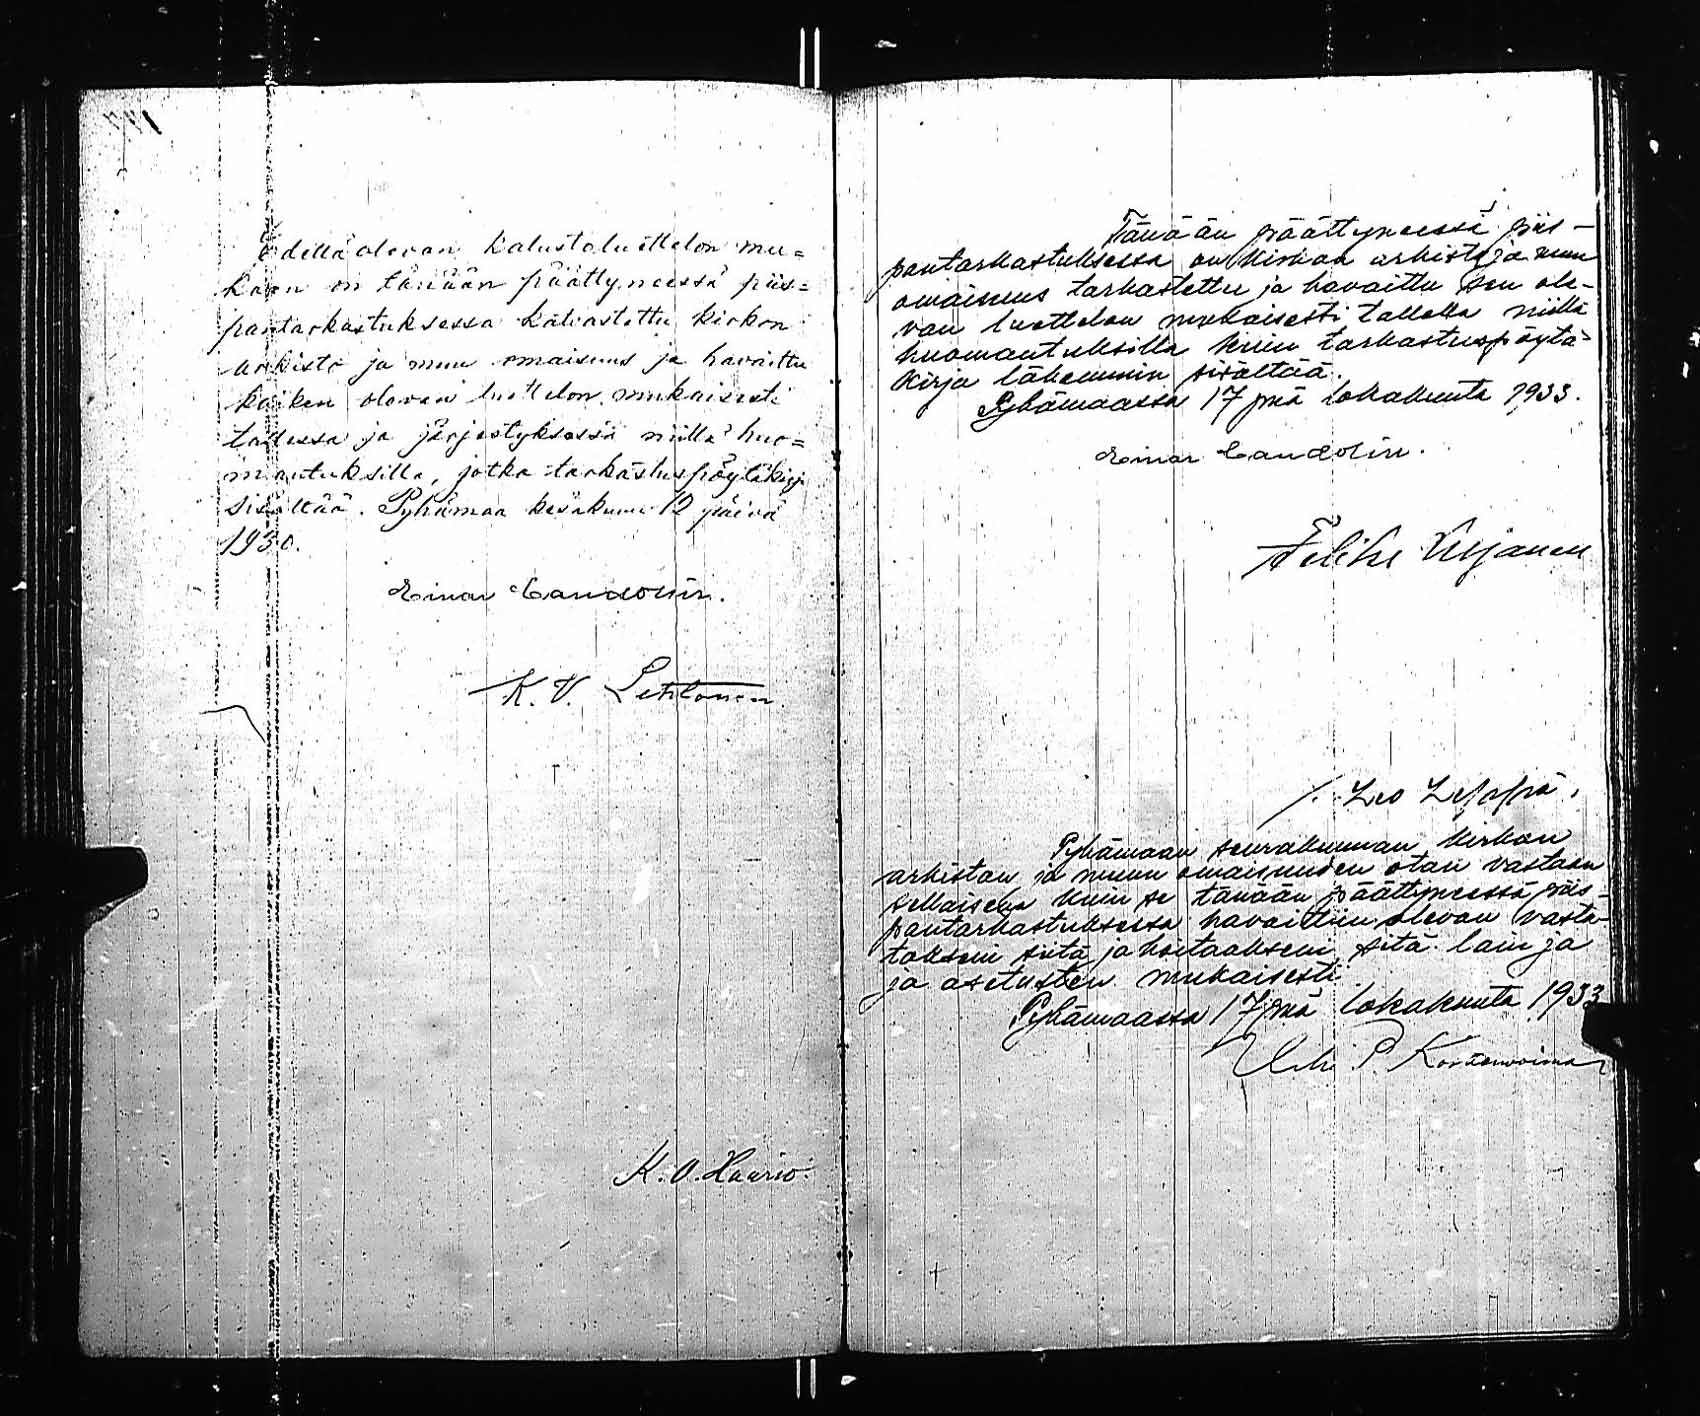 Edellä olevan kalustoluettelon mu=
kaan on tänään päättyneessä piis=
pantarkastuksessa katsastettu kirkon
arkisto ja muu omaisuus ja havaittu
kaiken olevan luettelon mukaisesti
tallessa ja järjestyksessä niillä huo=
mautuksilla, jotka tarkastuspöytäkirja
sisältää. Pyhämaa kesäkuun 12 päivä
1930.
Einar Candolin.
K. V. Lehtonen.
K. O. Haario.
Tänään päättyneessä piis-
pantarkastuksessa on kirkon arkisto ja muu
omaisuus tarkastettu ja havaittu sen ole-
van luettelon mukaisesti tallella niillä
huomautuksilla kuin tarkastuspöytä-
kirja lähemmin sisältää.
Pyhämaassa 17 pnä lokakuuta 1933.
Einar Candolin.
Leo Leppä.
Pyhämaan seurakunnan kirkon
arkiston ja muun omaisuuden otan vastaan
sellaisena kuin se tänään päättyneessä piis-
pantarkastuksessa havaittiin olevan vasta-
takseni siitä ja hoitaakseni sitä lain ja
ja asetusten mukaisesti
Pyhämaassa 17 pnä lokakuuta 1933